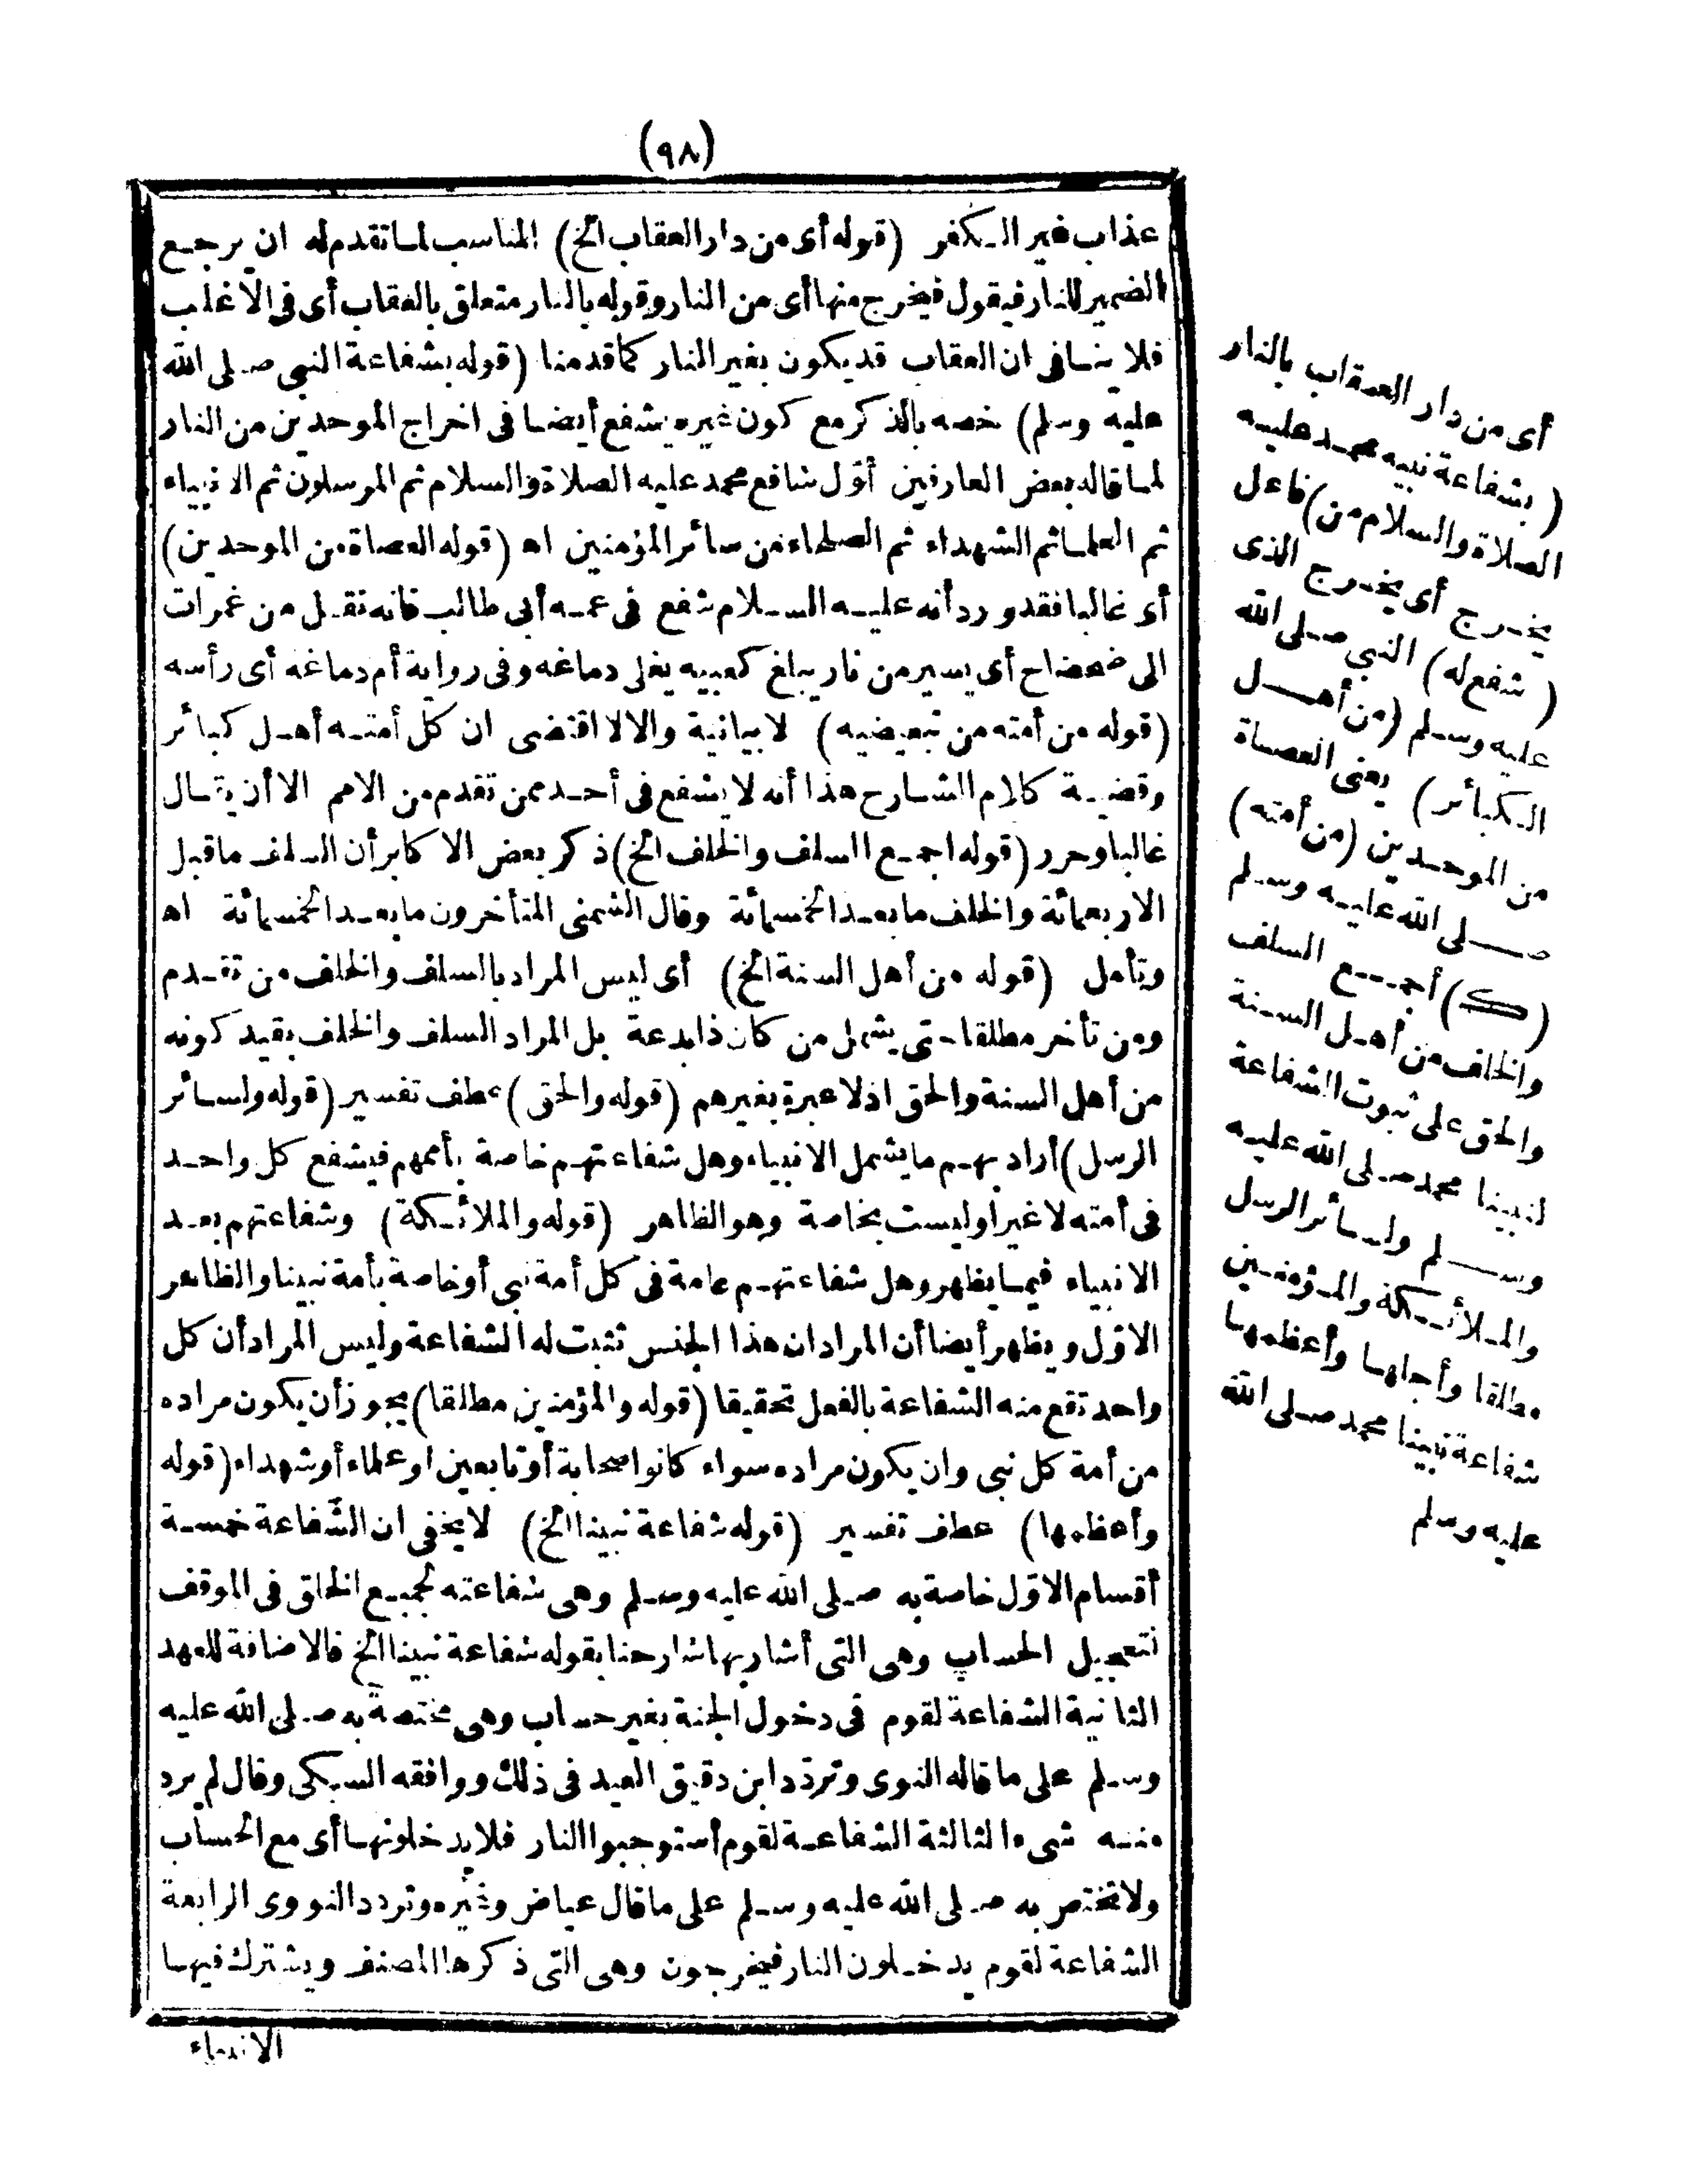 (٩٨)
عذاب غير الكفر (قوله أى من دار العقاب الخ) المناسب لما تقدم له ان يرجع
الضمير للنار فيقول فيخرج منها أى من النار وقوله بالنار متعلق بالعقاب أى فى الاغلب
فلا ينافى ان العقاب قد يكون بغير النار كما قدمنا (قوله بشفاعة النبى صلى الله
عليه وسلم) خصه بالذكر مع كون غيره يشفع أيضا فى اخراج الموحدين من النار
لما قاله بعض العارفين أوّل شافع محمد عليه الصلاة والسلام ثم المرسلون ثم الانبياء
ثم العلماء ثم الشهداء ثم الصلحاء من سائر المؤمنين اه (قوله العصاة من الموحدين)
أى غالبا فقد ورد أنه عليه السلام شفع فى عمه أبى طالب فانه نقل من غمرات
الى ضحضاح أى يسير من نار يبلغ كعبيه يغلى دماغه وفى رواية أم دماغه أى رأسه
(قوله من أمته من تبعيضيه) لا بيانية والالا اقتضى ان كل أمته أهل كبائر
وقضية كلام الشارح هذا أنه لا يشفع فى أحد ممن تقدم من الامم الا أن يقال
غالبا وحرر (قوله اجمع السلف والخلف الخ) ذكر بعض الاكابر أن السلف ماقبل
الاربعمائة والخلف ما بعد الخمسمائة وقال الشمنى المتأخرون ما بعد الخمسمائة اه
وتأمل (قوله من أهل السنة الخ) أى ليس المراد بالسلف والخلف من تقدم
ومن تأخر مطلقا حتى يشمل من كان ذا بدعة بل المراد السلف والخلف بقيد كونه
من أهل السنة والحق اذ لا عبرة بغيرهم (قوله والحق) عطف تفسير (قوله ولسائر
الرسل) أراد بهم ما يشمل الانبياء وهل شفاعتهم خاصة بأممهم فيشفع كل واحد
فى أمته لا غير اوليست بخاصة وهو الظاهر (قوله والملائكة) وشفاعتهم بعد
الانبياء فيما يظهر وهل شفاعتهم عامة فى كل أمة نبى أو خاصة بأمة نبينا والظاهر
الاوّل ويظهر أيضا أن المراد ان هذا الجنس تثبت له الشفاعة وليس المراد أن كل
واحد تقع منه الشفاعة بالفعل تحقيقا (قوله والمؤمنين مطلقا) يجوز أن يكون مراده
من أمة كل نبى وان يكون مراده سواء كانوا صحابة أو تابعين او علماء أو شهداء (قوله
وأعظمها) عطف تفسير (قوله شفاعة نبينا الخ) لا يخفى ان الشفاعة خمسة
أقسام الاوّل خاصة به صلى الله عليه وسلم وهى شفاعته لجميع الخلق فى الموقف
لتعجيل الحساب وهى التى أشار بها شارحنا بقوله شفاعة نبينا الخ فالاضافة للعهد
الثانية الشفاعة لقوم فى دخول الجنة بغير حساب وهى مختصة به صلى الله عليه
وسلم على ما قاله النوى وتردّد ابن دقيق العيد فى ذلك ووافقه السبكى وقال لم يرد
منه شىء الثالثة الشفاعة لقوم أستوجبوا النار فلا يدخلونها أى مع الحساب
ولا تختص به صلى الله عليه وسلم على ما قال عياض وغيره وتردد النووى الرابعة
الشفاعة لقوم يدخلون النار فيخرجون وهى التى ذكرها المصنف ويشترك فيها
الانبياء
أى من دار العقاب بالنار
(بشفاعة نبيه محمد عليه
الصلاة والسلام من) فاعل
يخرج أى يخرج الذى
(شفع له) النبى صلى الله
عليه وسلم (من أهل
الكبائر) يعنى العصاة
من الموحدين (من أمته)
صلى الله عليه وسلم
(ك) أجمع السلف
والخلف من أهل السنة
والحق على ثبوت الشفاعة
لنبينا محمد صلى الله عليه
وسلم ولسائر الرسل
والملائكة والمؤمنين
مطلقا وأجلها وأعظمها
شفاعة نبينا محمد صلى الله
عليه وسلم